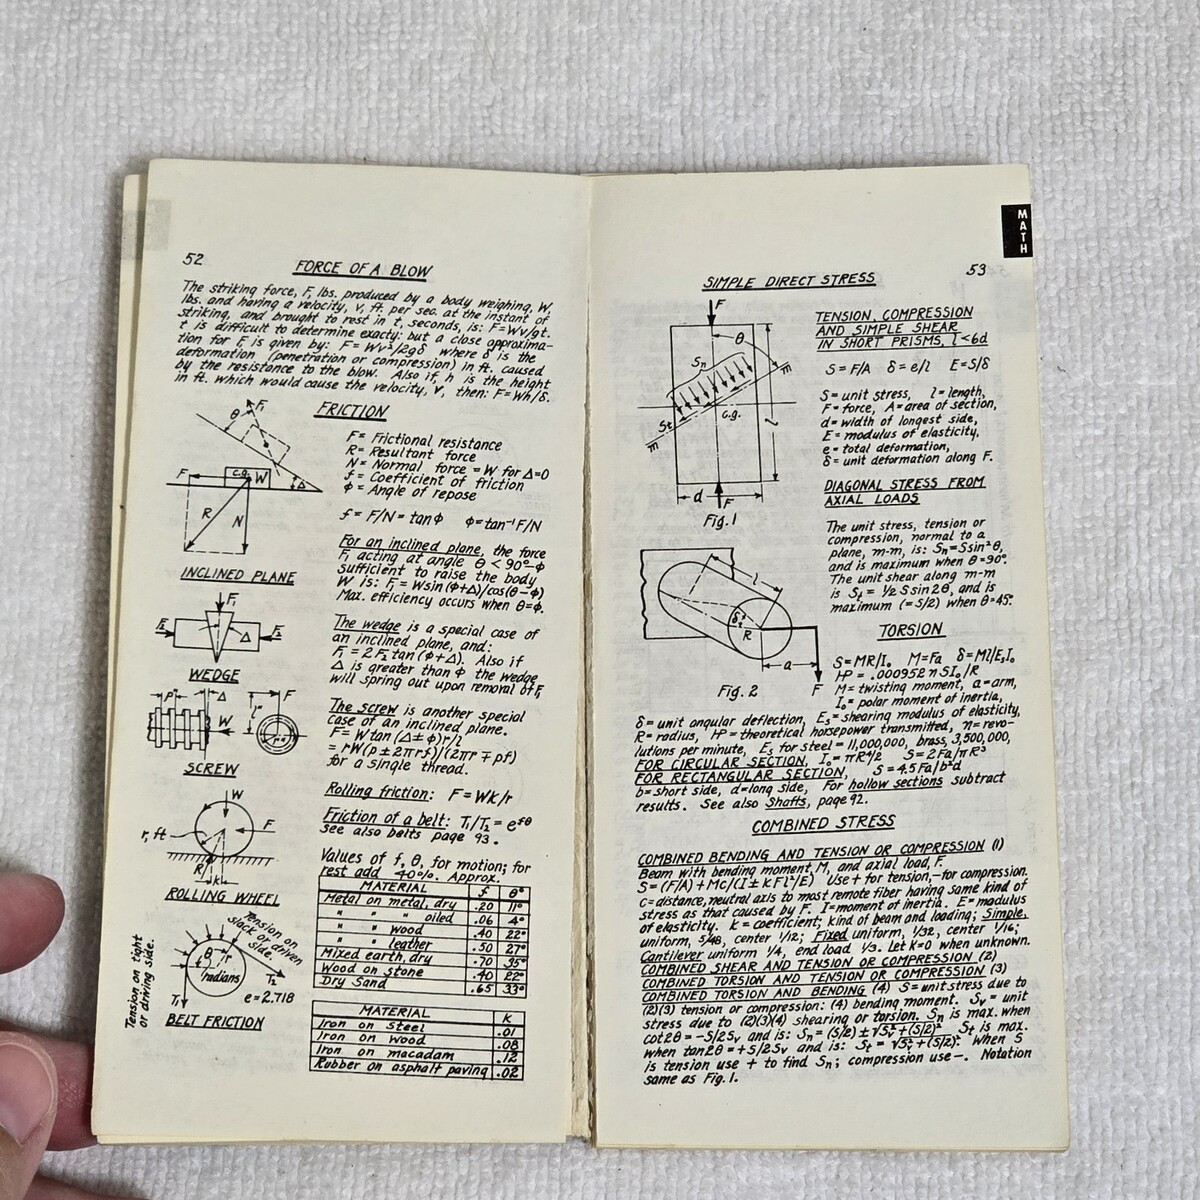 52
FORCE OF A BLOW
The striking force, F, lbs. produced by a body weighing, W,
lbs. and having a velocity, v, ft. per sec. at the instant of
striking, and brought to rest in t, seconds, is: F=Wv/gt.
t is difficult to determine exactly: but a close approxima-
tion for F is given by: F=Wv²/2gδ where δ is the
deformation (penetration or compression) in ft. caused
by the resistance to the blow. Also if, h is the height
in ft. which would cause the velocity, v, then: F=Wh/δ.
FRICTION
θ F₁
F c.g. W Δ
R N
INCLINED PLANE
F= Frictional resistance
R= Resultant force
N= Normal force =W for Δ=0
f= Coefficient of friction
φ= Angle of repose
f=F/N=tanφ φ=tan⁻¹F/N
For an inclined plane, the force
F₁ acting at angle θ<90°-φ
sufficient to raise the body
W is: F₁=Wsin(φ+Δ)/cos(θ-φ)
Max. efficiency occurs when θ=φ.
F₁
F₂ Δ F₂
WEDGE
The wedge is a special case of
an inclined plane, and:
F₁=2F₂tan(φ+Δ). Also if
Δ is greater than φ the wedge
will spring out upon removal of F₁
p Δ F
W
SCREW
The screw is another special
case of an inclined plane.
F=Wtan(Δ±φ)r/l
=rW(p±2πrf)/(2πr∓pf)
for a single thread.
W
r, ft F
R
k
ROLLING WHEEL
Rolling friction: F=Wk/r
Friction of a belt: T₁/T₂=e^fθ
see also belts page 93.
Tension on
slack or driven
side.
Tension on tight
or driving side.
θ r
radians
T₁ T₂
e=2.718
BELT FRICTION
Values of f, θ, for motion; for
rest add 40%. Approx.
MATERIAL f θ°
Metal on metal, dry .20 11°
" " " oiled .06 4°
" " wood .40 22°
" " leather .50 27°
Mixed earth, dry .70 35°
Wood on stone .40 22°
Dry Sand .65 33°
MATERIAL K
Iron on steel .01
Iron on wood .08
Iron on macadam .12
Rubber on asphalt paving .02
MATH
53
SIMPLE DIRECT STRESS
F
θ
Sn
m
St c.g.
m
l
d F
Fig. 1
TENSION, COMPRESSION
AND SIMPLE SHEAR
IN SHORT PRISMS, l<6d
S=F/A δ=e/l E=S/δ
S=unit stress, l=length,
F=force, A=area of section,
d=width of longest side,
E=modulus of elasticity,
e=total deformation,
δ=unit deformation along F.
DIAGONAL STRESS FROM
AXIAL LOADS
The unit stress, tension or
compression, normal to a
plane, m-m, is: Sn=Ssin²θ,
and is maximum when θ=90°.
The unit shear along m-m
is St=½Ssin2θ, and is
maximum (=S/2) when θ=45°.
l
δ
R
a
F
Fig. 2
TORSION
S=MR/I₀ M=Fa δ=Ml/EsI₀
HP=.000952nSI₀/R
M=twisting moment, a=arm,
I₀=polar moment of inertia,
δ=unit angular deflection, Es=shearing modulus of elasticity,
R=radius, HP=theoretical horsepower transmitted, n=revo-
lutions per minute, Es for steel=11,000,000, brass, 3,500,000,
FOR CIRCULAR SECTION, I₀=πR⁴/2 S=2Fa/πR³
FOR RECTANGULAR SECTION, S=4.5Fa/b²d
b=short side, d=long side, For hollow sections subtract
results. See also Shafts, page 92.
COMBINED STRESS
COMBINED BENDING AND TENSION OR COMPRESSION (1)
Beam with bending moment, M, and axial load, F.
S=(F/A)+Mc/(I±KFl²/E) Use+for tension,-for compression.
c=distance, neutral axis to most remote fiber having same kind of
stress as that caused by F. I=moment of inertia. E=modulus
of elasticity. K=coefficient; kind of beam and loading; Simple,
uniform, 5/48, center 1/12; Fixed uniform, 1/32, center 1/16;
Cantilever uniform 1/4, end load 1/3. Let K=0 when unknown.
COMBINED SHEAR AND TENSION OR COMPRESSION (2)
COMBINED TORSION AND TENSION OR COMPRESSION (3)
COMBINED TORSION AND BENDING (4) S=unit stress due to
(2)(3) tension or compression: (4) bending moment. Sv=unit
stress due to (2)(3)(4) shearing or torsion. Sn is max. when
cot2θ=-S/2Sv and is: Sn=(S/2)±√Sv²+(S/2)² St is max.
when tan2θ=+S/2Sv and is: St=√Sv²+(S/2)². When S
is tension use + to find Sn; compression use-. Notation
same as Fig. 1.